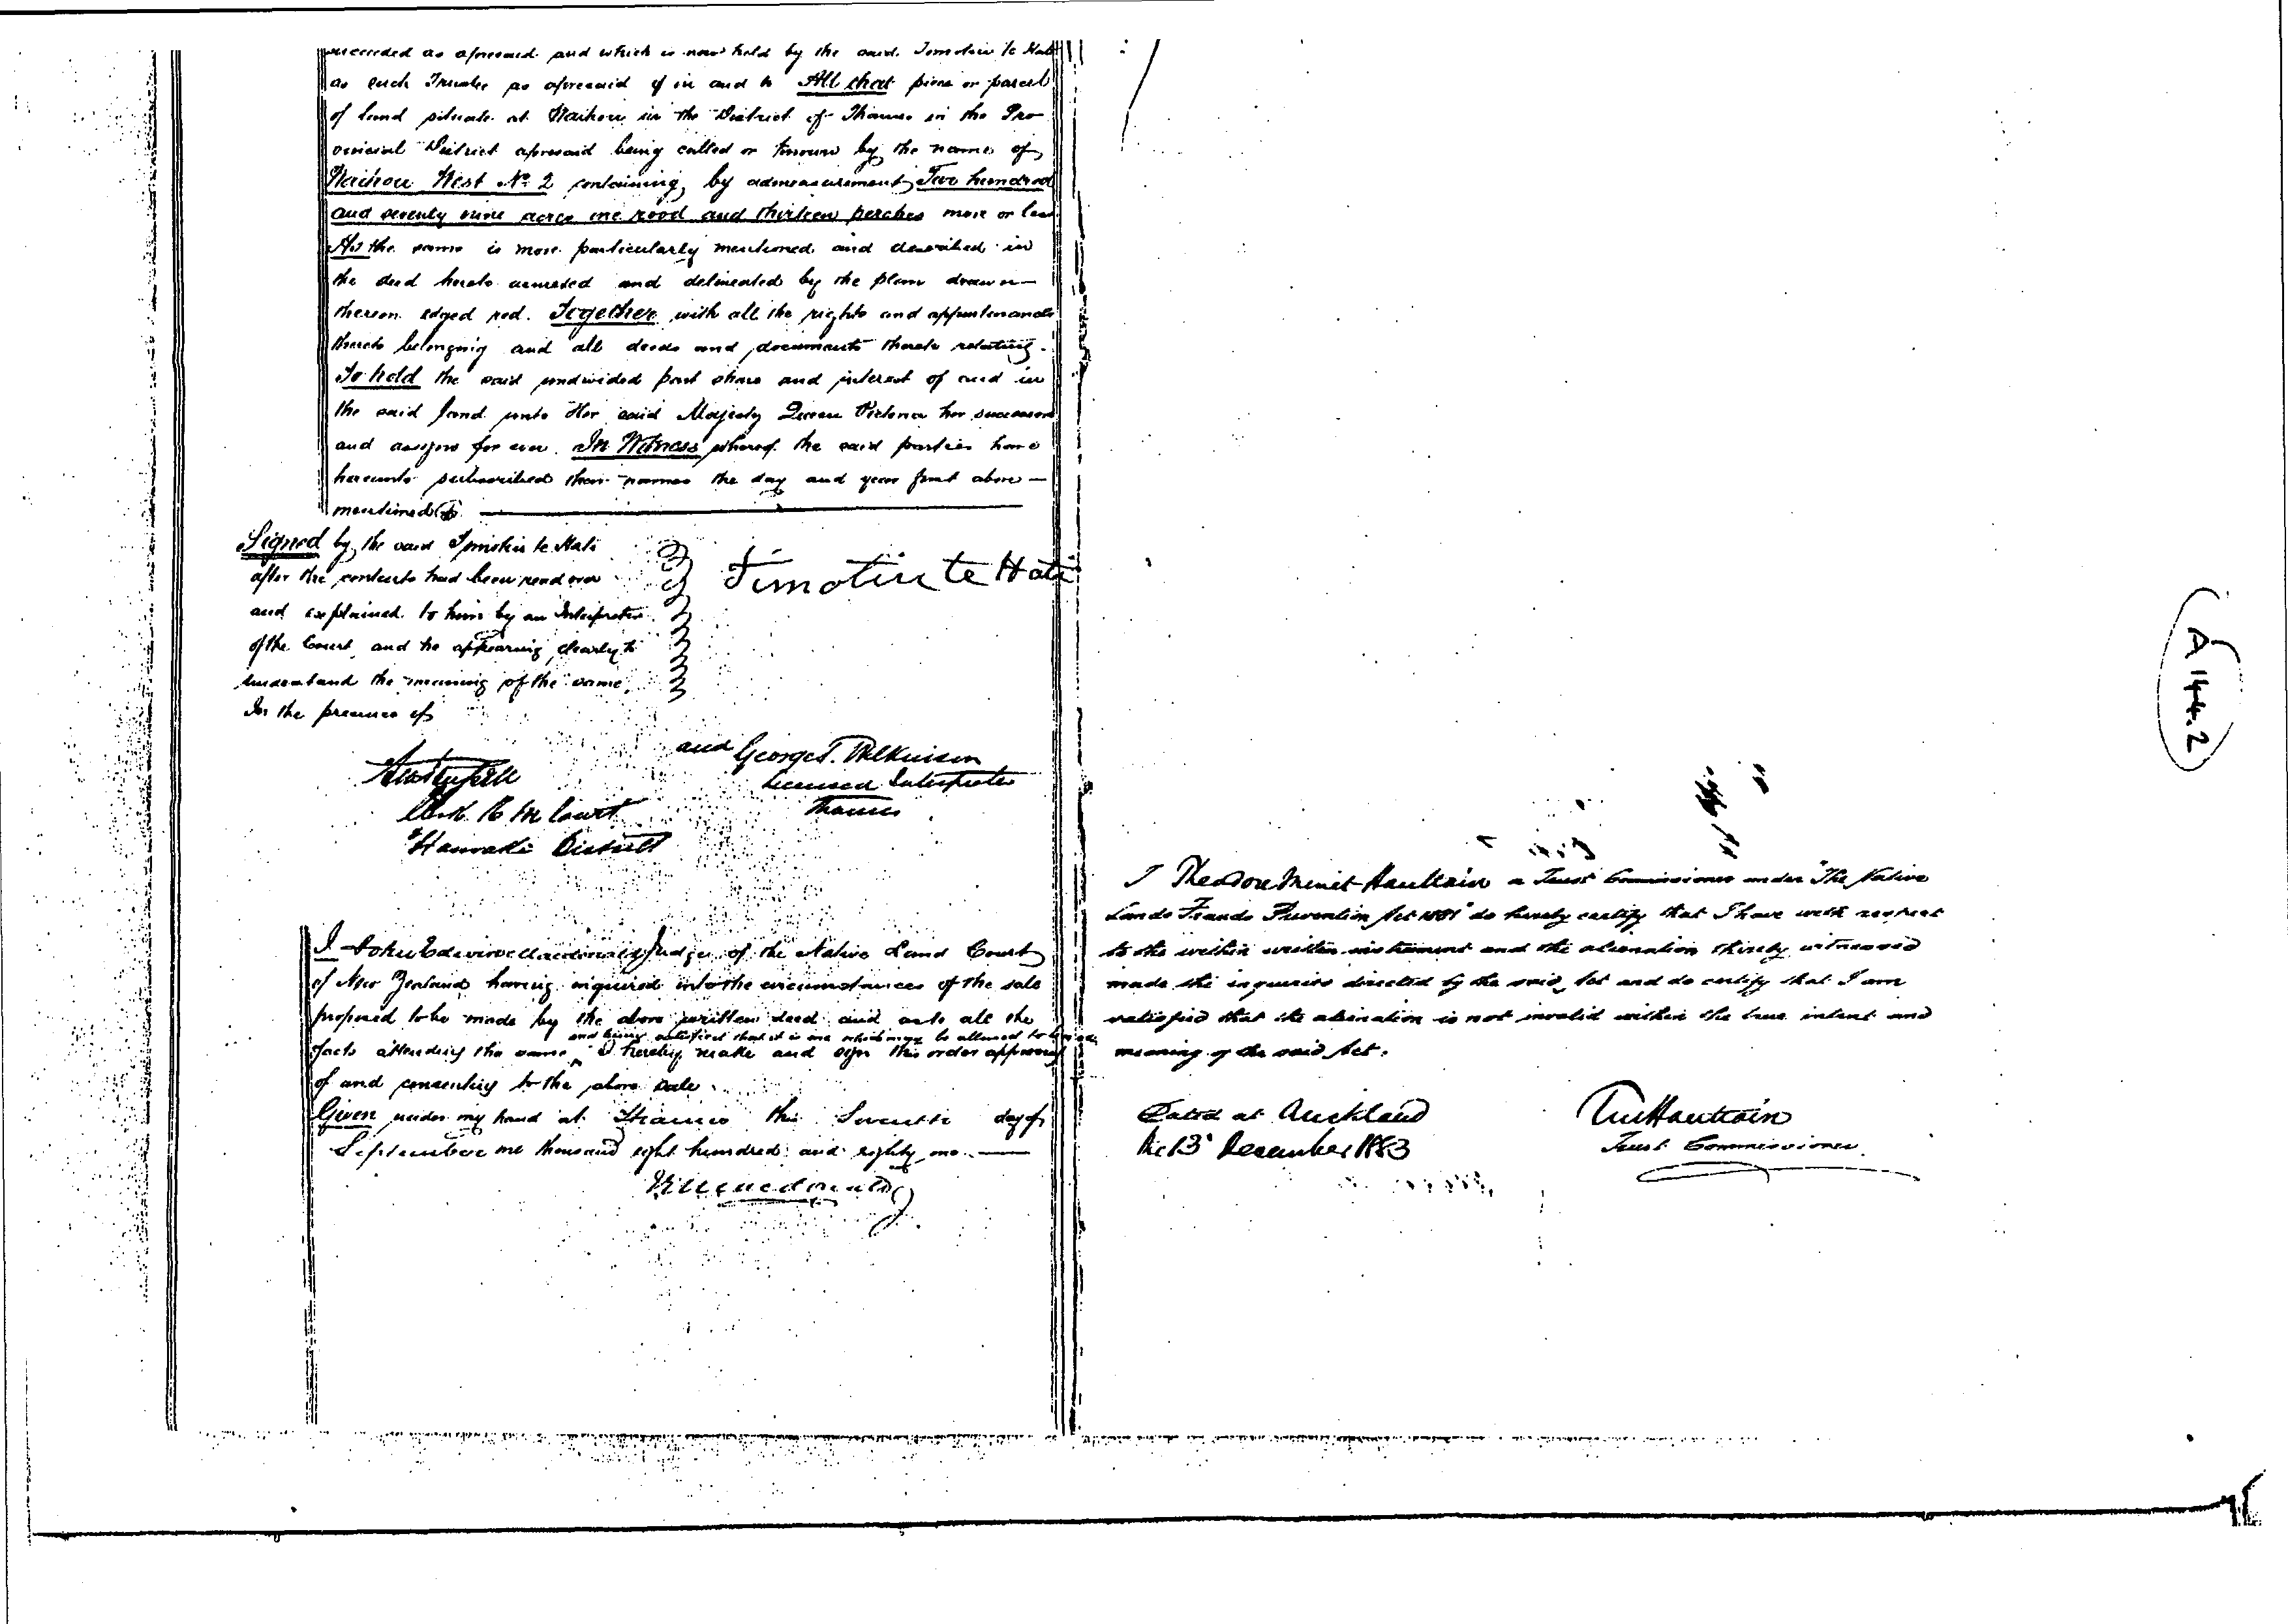 succeeded as aforesaid and which is now held by the said Timotiu te Hati
as such Trustee as aforesaid of in and to All that piece or parcel
of land situate at Waihou in the District of Thames in the Pro
vincial District aforesaid being called or known by the name of
Waihou West No. 2 containing by admeasurement Two hundred
and seventy nine acres one rood and thirteen perches more or less
As the same is more particularly mentioned and described in
the deed hereto annexed and delineated by the plan drawn
thereon edged red. Together with all the rights and appurtenances
thereto belonging and all deeds and documents thereto relating.
To hold the said undivided part share and interest of and in
the said land unto Her said Majesty Queen Victoria her successors
and assigns for ever. In Witness whereof the said parties have
hereunto subscribed their names the day and year first above
mentioned
Signed by the said Timotiu te Hati
after the contents had been read over
and explained to him by an Interpreter
of the Court and he appearing clearly to
understand the meaning of the same
In the presence of
Timotiu te Hati
Clerk R M Court
Hauraki District
and George T. Wilkinson
Licensed Interpreter
Thames
I John Edwin Macdonald Judge of the Native Land Court
of New Zealand having inquired into the circumstances of the sale
proposed to be made by the above written deed and as to all the
and being satisfied that it is one which may be allowed to
facts attending the same I hereby make and sign this order approving
of and consenting to the above sale
Given under my hand at Thames this Seventh day of
September one thousand eight hundred and eighty one
JE Macdonald
I Theodore Minet Haultain a Trust Commissioner under "The Native
Lands Frauds Prevention Act 1881" do hereby certify that I have with respect
to the within written instrument and the alienation thereby witnessed
made the inquiries directed by the said Act and do certify that I am
satisfied that the alienation is not invalid within the true intent and
meaning of the said Act.
Dated at Auckland
the 13 December 1883
TM Haultain
Trust Commissioner
A 144.2